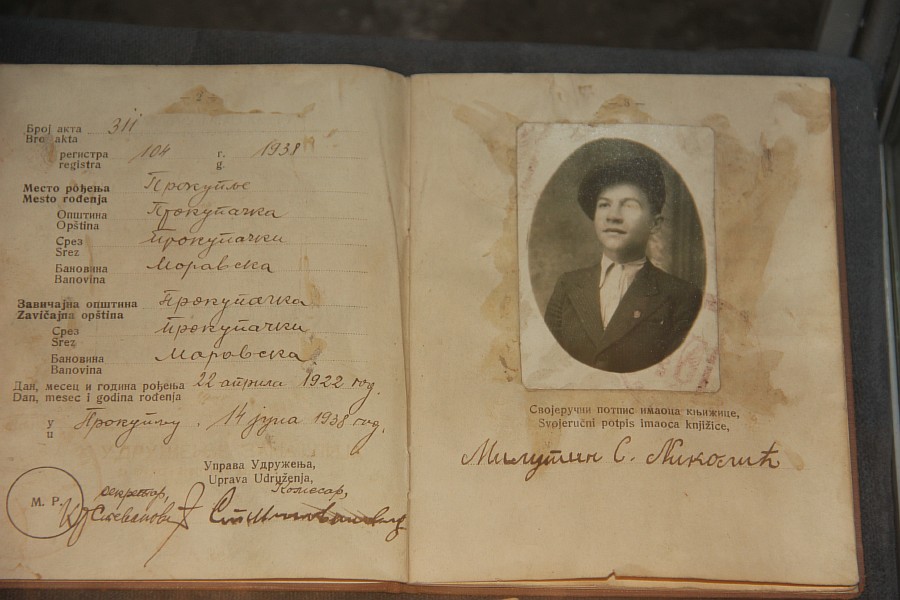 — 2 —
Број акта 311
Broj akta
регистра 104 г. 1938
registra g.
Место рођења Прокупље
Mesto rođenja
Општина Прокупачка
Opština
Срез Прокупачки
Srez
Бановина Моравска
Banovina
Завичајна општина Прокупачка
Zavičajna opština
Срез Прокупачки
Srez
Бановина Моравска
Banovina
Дан, месец и година рођења 22 априла 1922 год.
Dan, mesec i godina rođenja
у Прокупљу, 14 јула 1938 год.
u
Управа Удружења,
Uprava Udruženja,
секретар, Комесар,
М. П.
Својеручни потпис имаоца књижице,
Svojeručni potpis imaoca knjižice,
Милутин С. Николић